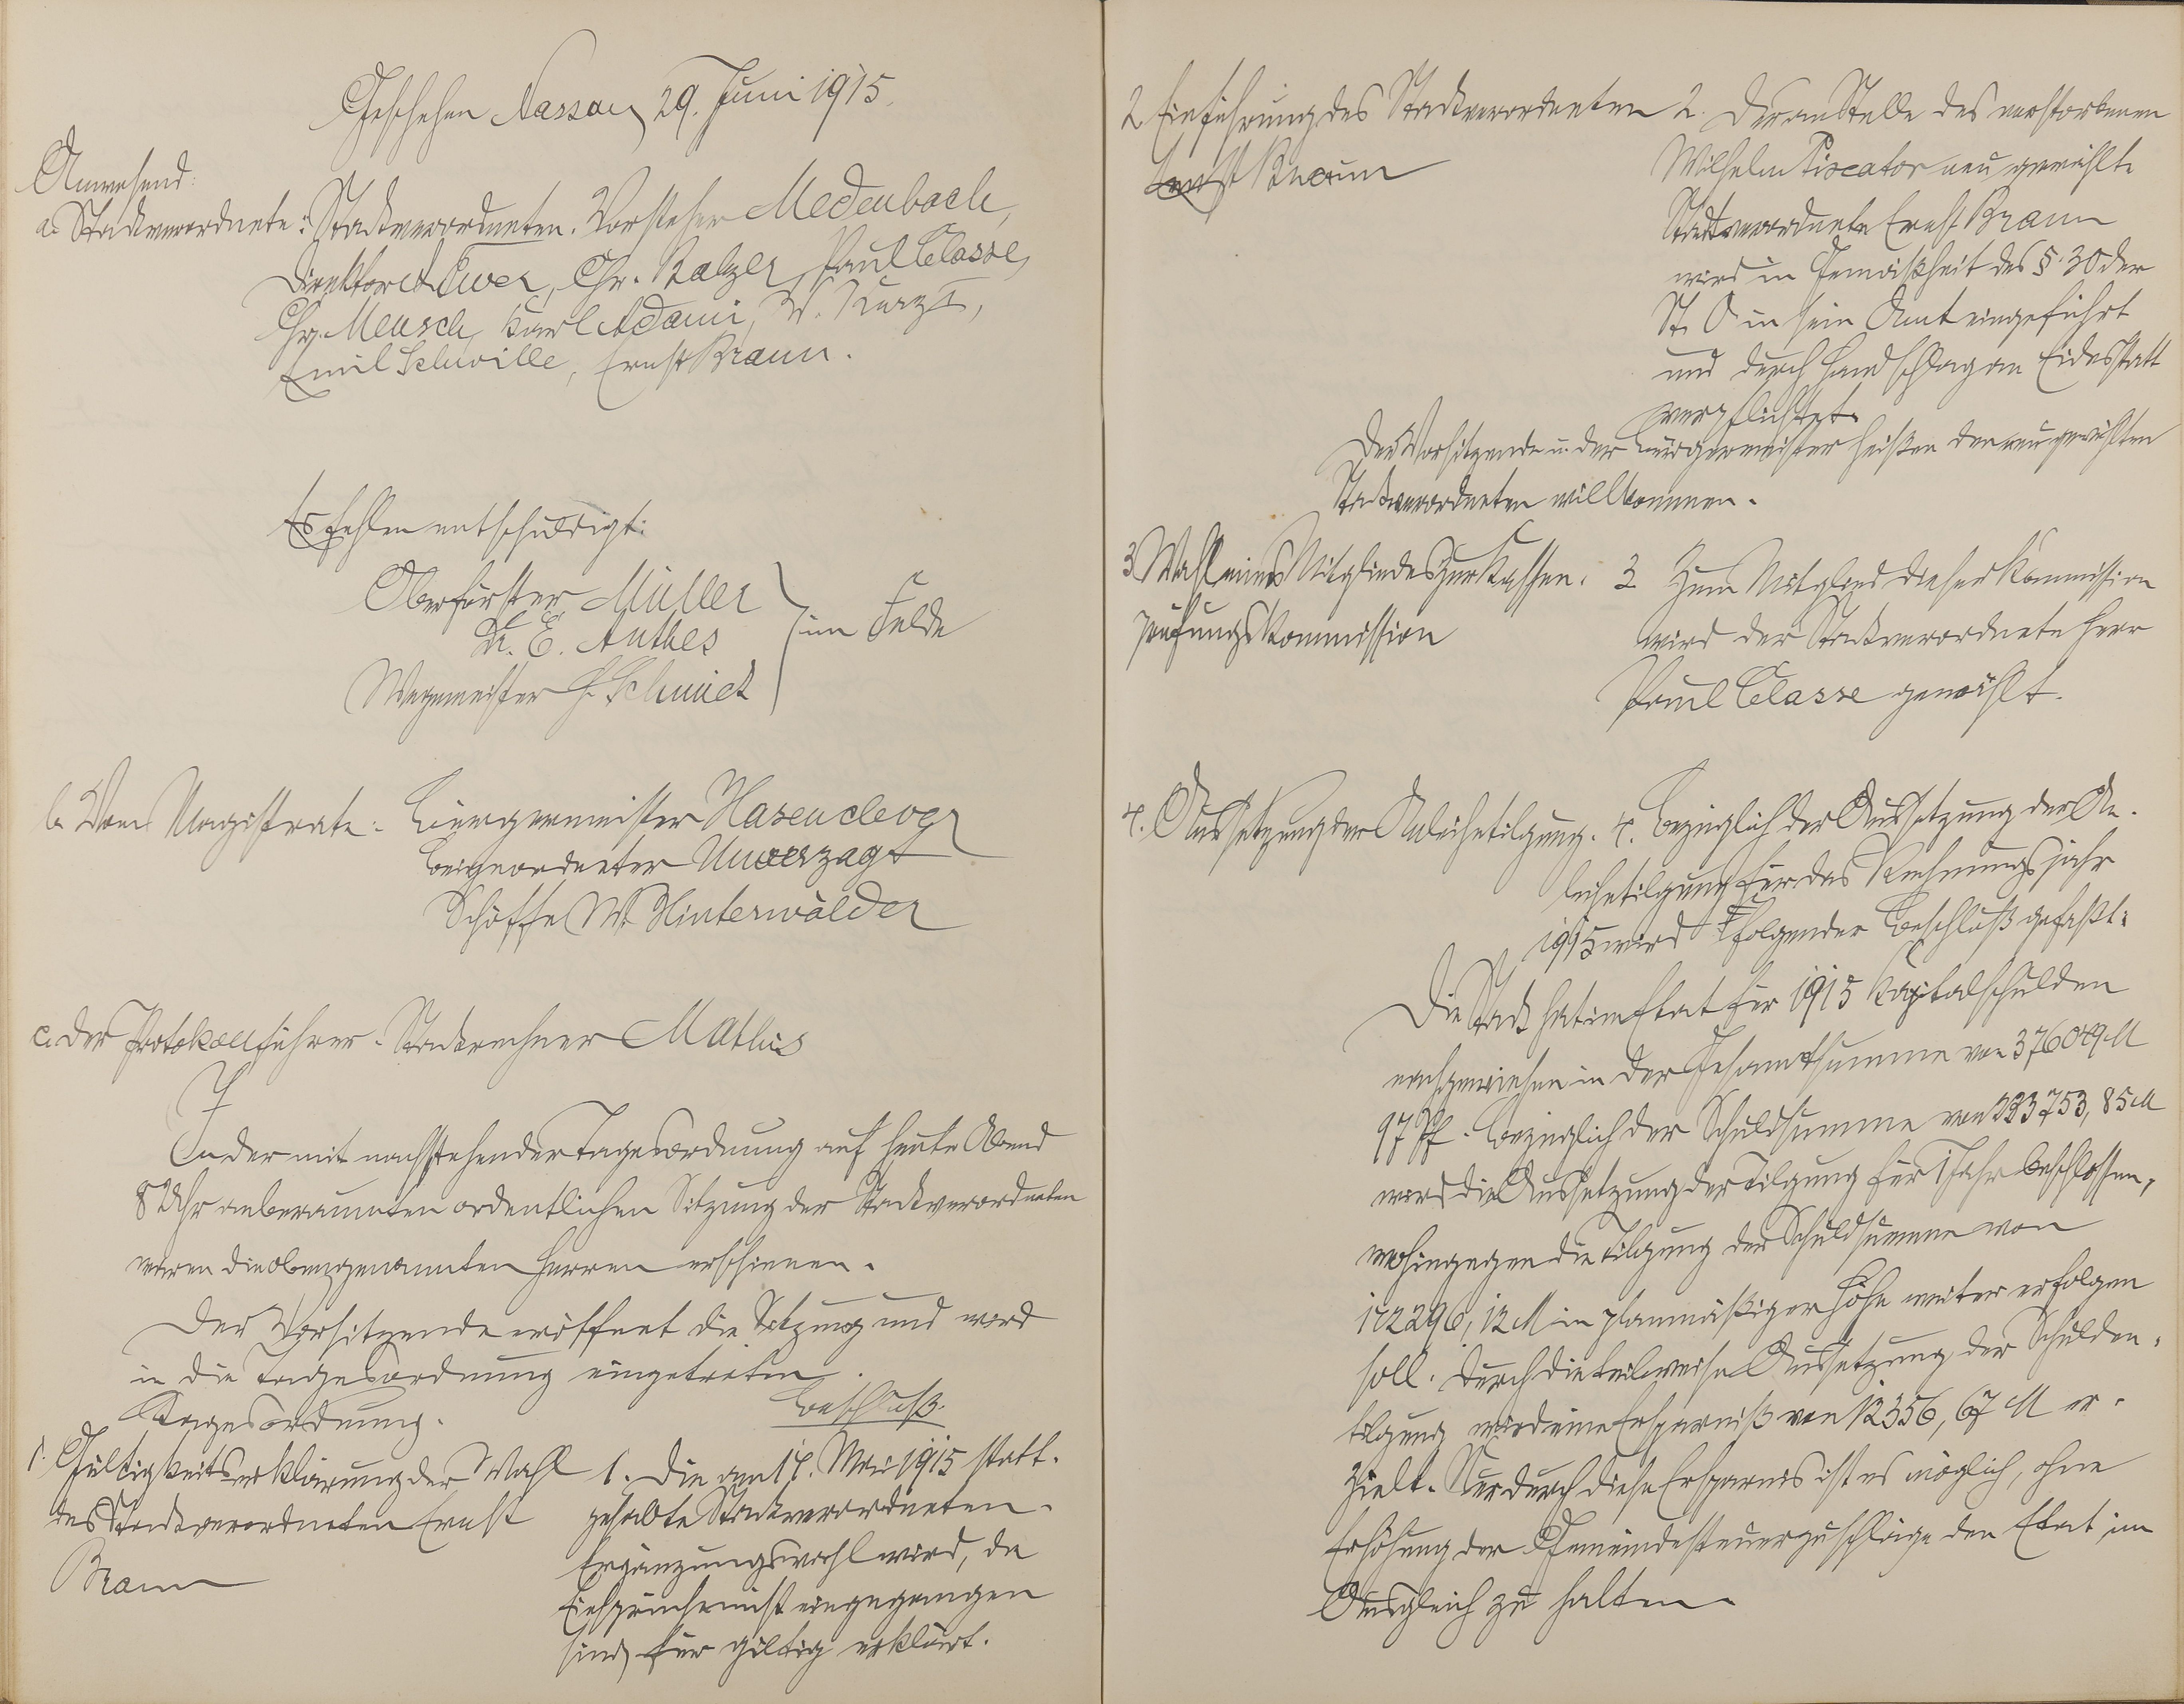 Geschehen Nassau, 29. Juni 1915.
Anwesend:
a. Stadtverordnete: Stadtverordneten-Vorsteher Medenbach,
Direktor Ewer, Chr. Balzer, Paul Classe,
Chr. Mensch, Karl Adami, W. Kurz I,
Emil Schwille, Ernst Braun.
Es fehlen entschuldigt:
Oberförster Müller
Dr. E. Anthes
im Felde
Wegemeister H. Schmidt
b. Vom Magistrate: Bürgermeister Hasenclever
Beigeordneter Unverzagt
Schöffe W. Hinterwälder
c. der Protokollführer: Stadtrechner Mathis
In der mit nachstehender Tagesordnung auf heute Abend
8 Uhr anberaumten ordentlichen Sitzung der Stadtverordneten
waren die obengenannten Herren erschienen.
Der Vorsitzende eröffnet die Sitzung und ward
in die Tagesordnung eingetreten.
Tagesordnung.
Beschluß.
1. Gültigkeitserklärung der Wahl
des Stadtverordneten Ernst
Braun
1. Die am 14. Mai 1915 statt-
gehabte Stadtverordneten-
Ergänzungswahl wird, da
Einsprüche nicht eingegangen
sind, für gültig erklärt.
2. Einführung des Stadtverordneten
Ernst Braun
2. Der an Stelle des verstorbenen
Wilhelm Piscator neu gewählte
Stadtverordnete Ernst Braun
wird in Gemäßheit des § 30 der
St. O in sein Amt eingeführt
und durch Handschlag an Eidesstatt
verpflichtet.
Der Vorsitzende u. der Bürgermeister heißen den neu gewählten
Stadtverordneten willkommen.
3 Wahl eines Mitgliedes zur Kassen-
prüfungskommission
3 Zum Mitglied dieser Kommission
wird der Stadtverordnete Herr
Paul Classe gewählt.
4. Aussetzung der Anleihetilgung.
4. Bezüglich der Aussetzung der An-
leihetilgung für das Rechnungsjahr
1915 wird folgender Beschluß gefaßt:
Die Stadt hat im Etat für 1915 Kapitalschulden
nachgewiesen in der Gesamtsumme von 376049 M
97 Pf. Bezüglich der Schuldsumme von 233753,85 M
wird die Aussetzung der Tilgung für 1 Jahr beschlossen,
wohingegen die Tilgung der Schuldsumme von
142296,12 M in planmäßiger Höhe weiter erfolgen
soll. Durch die teilweise Aussetzung der Schulden-
tilgung wird eine Ersparniß von 12356,67 M er-
zielt. Nur durch diese Ersparnis ist es möglich, ohne
Erhöhung der Gemeindesteuerzuschläge den Etat im
Ausgleich zu halten.